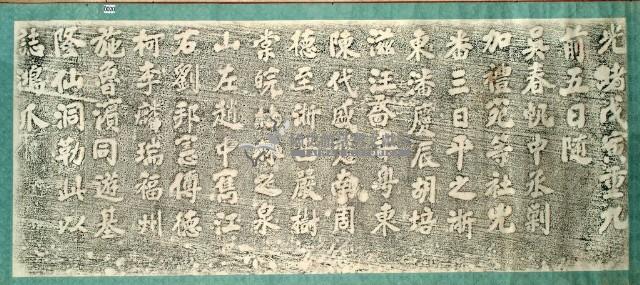 光緒戊寅重九
前五日隨
吳春帆中丞剿
加禮苑等社兇
番三日平之浙
東潘慶辰胡培
滋汪喬年粵東
陳代盛楚南周
德至浙西嚴樹
棠皖之泉
山左趙中雋江
右劉邦憲傅德
柯李麟瑞福州
施魯濱同遊基
隆仙洞勒此以
誌鴻爪
0020